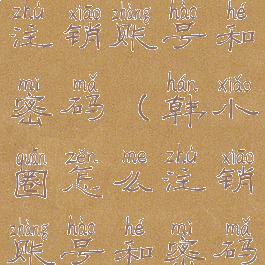 zhù xiāo zhàng hào hé
注销账号和
mì mǎ hán xiǎo
密码（韩小
quān zěn me zhù xiāo
圈怎么注销
zhàng hào hé mì mǎ
账号和密码